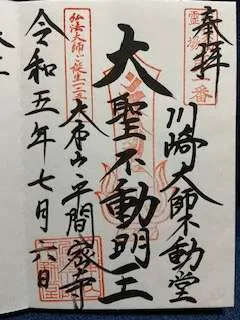 奉拝
川崎大師不動堂
大聖不動明王
弘法大師御誕生一二五
大本山平間寺
令和五年七月六日